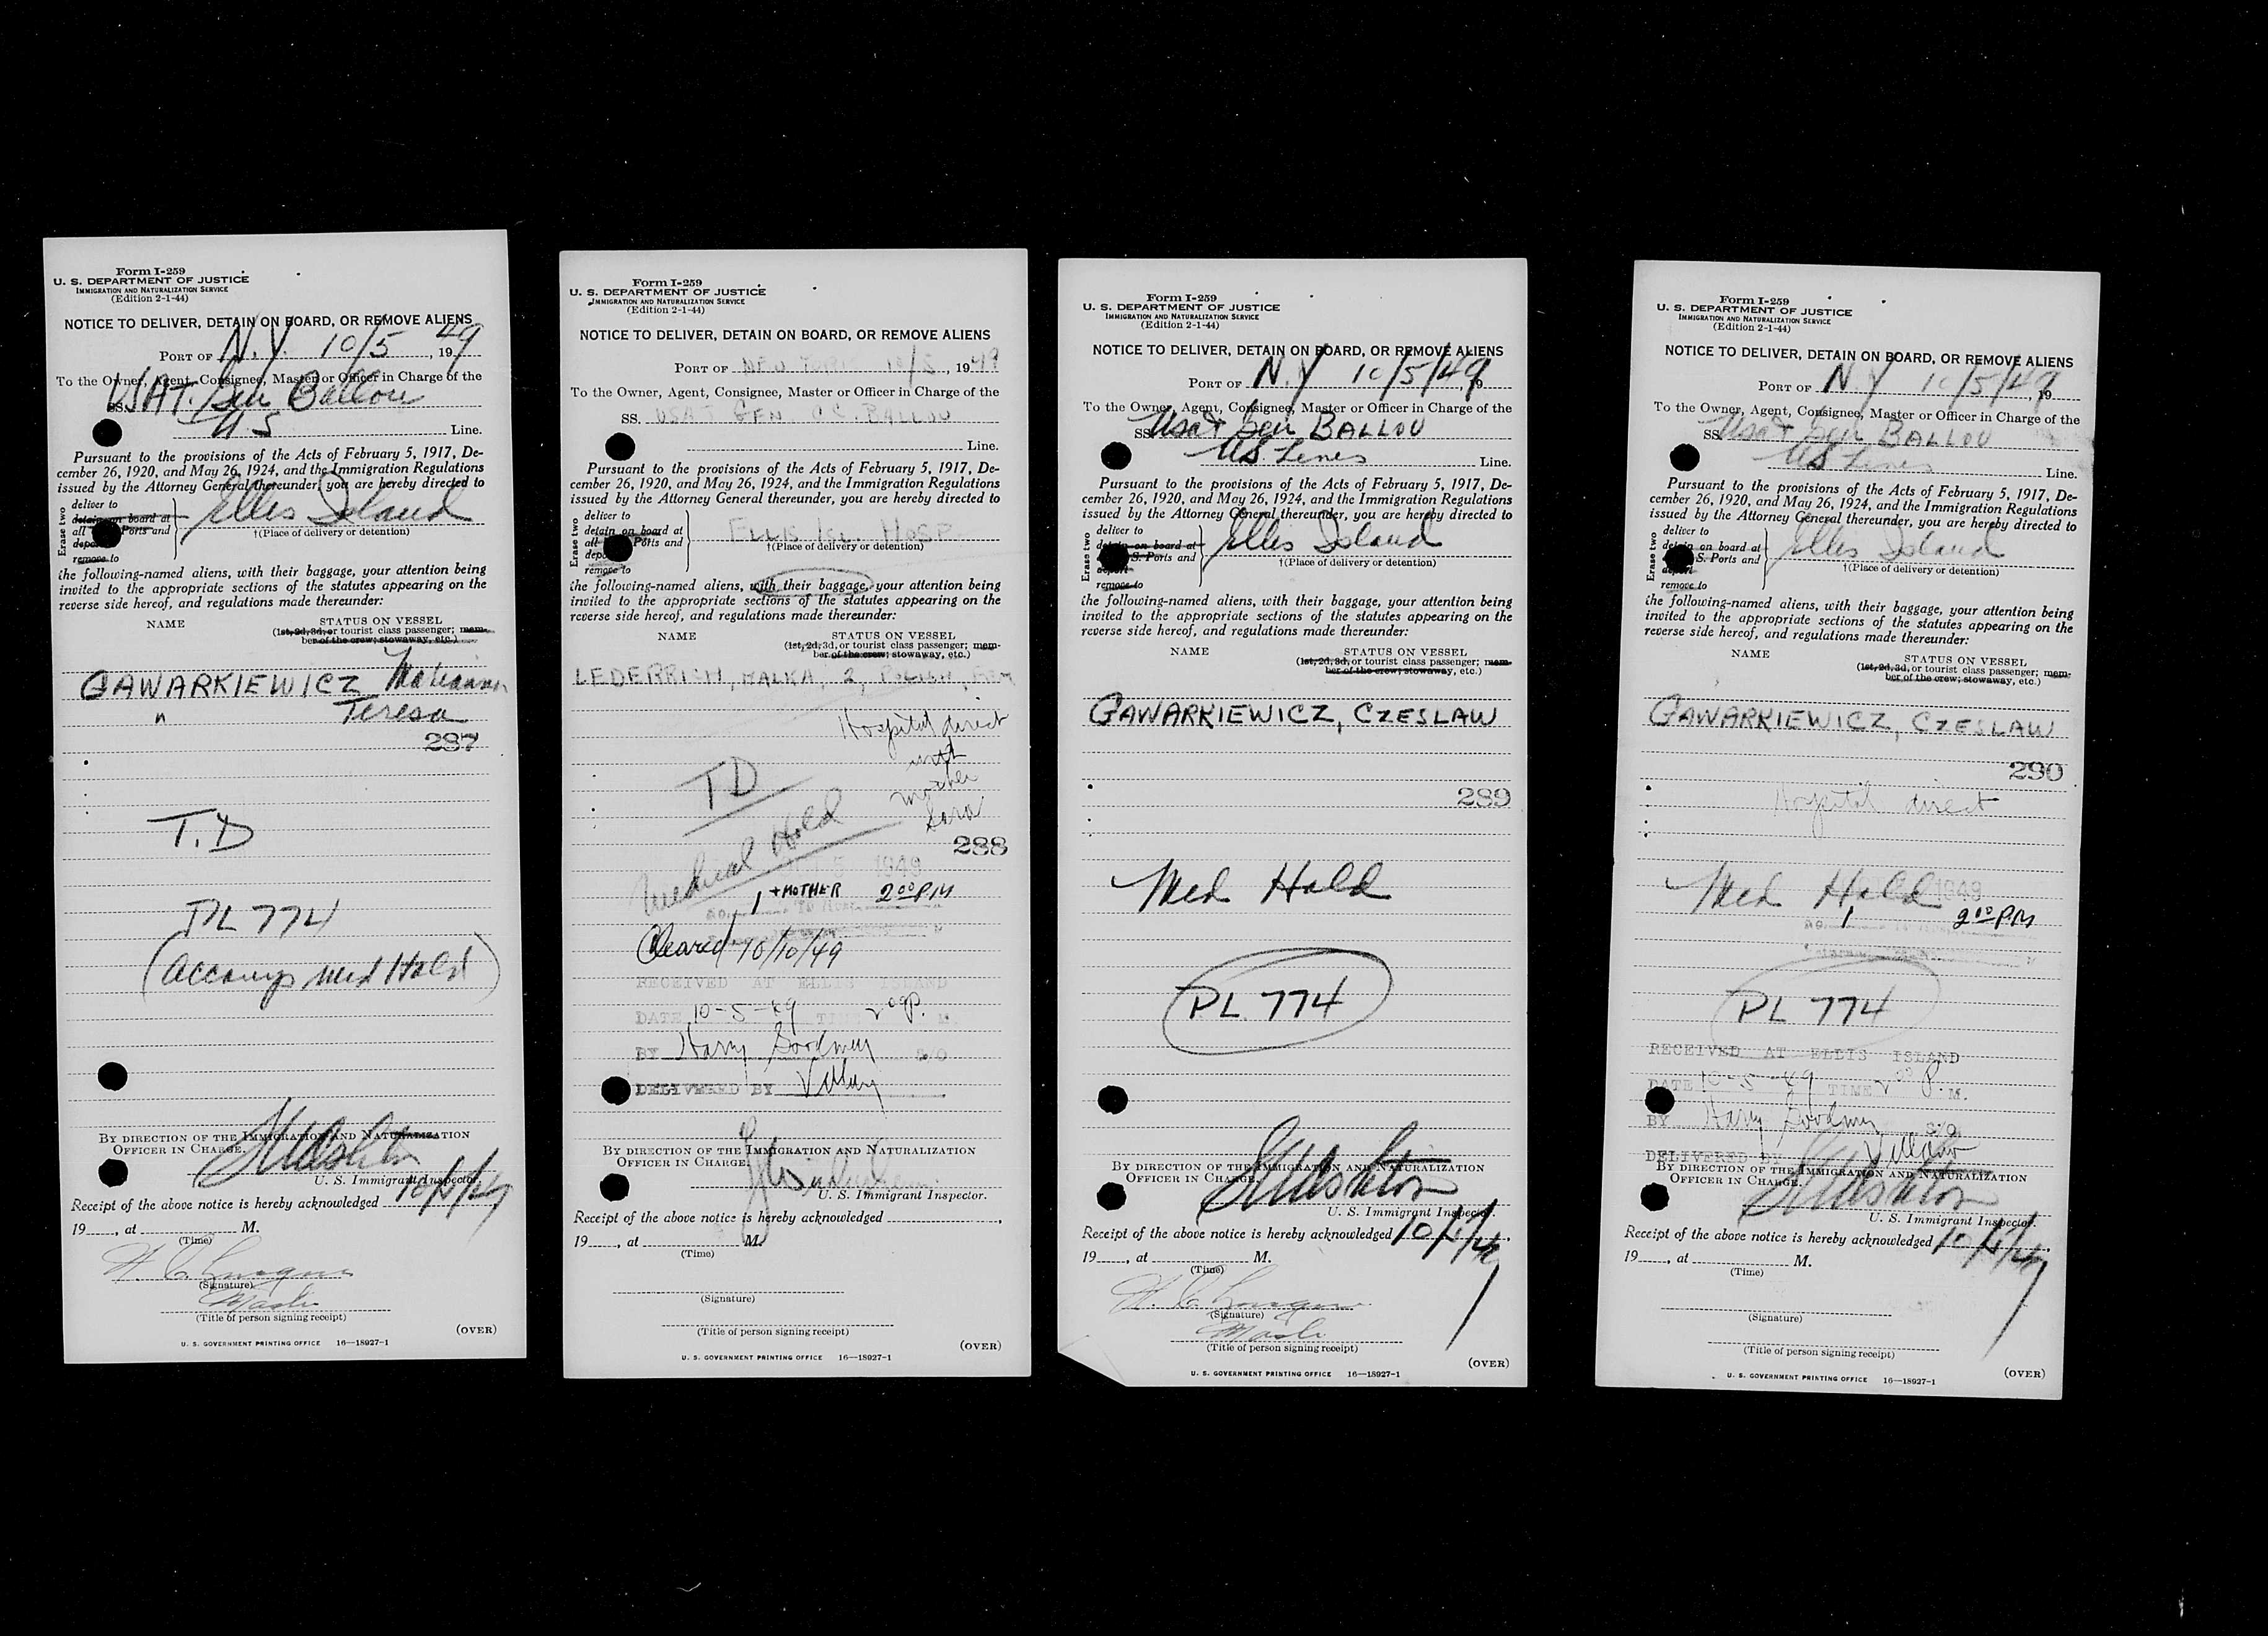 Form I-259
U. S. DEPARTMENT OF JUSTICE
IMMIGRATION AND NATURALIZATION SERVICE
(Edition 2-1-44)
NOTICE TO DELIVER, DETAIN ON BOARD, OR REMOVE ALIENS
PORT OF N.Y. 10/5, 1949
To the Owner, Agent, Consignee, Master or Officer in Charge of the
SS. USAT. Gen Ballou
US Line.
Pursuant to the provisions of the Acts of February 5, 1917, De-
cember 26, 1920, and May 26, 1924, and the Immigration Regulations
issued by the Attorney General thereunder, you are hereby directed to
Erase two
deliver to
detain on board at
all Ports and
remove to
Ellis Island
†(Place of delivery or detention)
the following-named aliens, with their baggage, your attention being
invited to the appropriate sections of the statutes appearing on the
reverse side hereof, and regulations made thereunder:
NAME STATUS ON VESSEL
(1st, 2d, 3d, or tourist class passenger; mem-
ber of the crew; stowaway, etc.)
GAWARKIEWICZ Marianna
" Teresa
287
T.D
PL 774
(Accomp Med Hold)
BY DIRECTION OF THE IMMIGRATION AND NATURALIZATION
OFFICER IN CHARGE.
U. S. Immigrant Inspector.
Receipt of the above notice is hereby acknowledged 10/5/49
19____, at ____ M.
(Time)
(Signature)
Master
(Title of person signing receipt)
(OVER)
U. S. GOVERNMENT PRINTING OFFICE 16—18927-1
Form I-259
U. S. DEPARTMENT OF JUSTICE
IMMIGRATION AND NATURALIZATION SERVICE
(Edition 2-1-44)
NOTICE TO DELIVER, DETAIN ON BOARD, OR REMOVE ALIENS
PORT OF NEW YORK 10/5, 1949
To the Owner, Agent, Consignee, Master or Officer in Charge of the
SS. USAT GEN C.C. BALLOU
Line.
Pursuant to the provisions of the Acts of February 5, 1917, De-
cember 26, 1920, and May 26, 1924, and the Immigration Regulations
issued by the Attorney General thereunder, you are hereby directed to
Erase two
deliver to
detain on board at
all Ports and
remove to
ELLIS ISL. HOSP.
†(Place of delivery or detention)
the following-named aliens, with their baggage, your attention being
invited to the appropriate sections of the statutes appearing on the
reverse side hereof, and regulations made thereunder:
NAME STATUS ON VESSEL
(1st, 2d, 3d, or tourist class passenger; mem-
ber of the crew; stowaway, etc.)
LEDERRICH, MALKA, 2, POLISH, FEM
Hospital direct
with
mother
Sara
TD
Medical Hold
288
5 1949
1 + MOTHER 2 00 PM
Cleared 10/10/49
RECEIVED AT ELLIS ISLAND
DATE 10-5-49 TIME 2 00 P. M.
BY Harry Goodman S/O
DELIVERED BY
BY DIRECTION OF THE IMMIGRATION AND NATURALIZATION
OFFICER IN CHARGE.
U. S. Immigrant Inspector.
Receipt of the above notice is hereby acknowledged ____,
19____, at ____ M.
(Time)
(Signature)
(Title of person signing receipt)
(OVER)
U. S. GOVERNMENT PRINTING OFFICE 16—18927-1
Form I-259
U. S. DEPARTMENT OF JUSTICE
IMMIGRATION AND NATURALIZATION SERVICE
(Edition 2-1-44)
NOTICE TO DELIVER, DETAIN ON BOARD, OR REMOVE ALIENS
PORT OF N Y 10/5/49, 19
To the Owner, Agent, Consignee, Master or Officer in Charge of the
SS. Usat Gen BALLOU
US Lines Line.
Pursuant to the provisions of the Acts of February 5, 1917, De-
cember 26, 1920, and May 26, 1924, and the Immigration Regulations
issued by the Attorney General thereunder, you are hereby directed to
Erase two
deliver to
detain on board at
S. Ports and
remove to
Ellis Island
†(Place of delivery or detention)
the following-named aliens, with their baggage, your attention being
invited to the appropriate sections of the statutes appearing on the
reverse side hereof, and regulations made thereunder:
NAME STATUS ON VESSEL
(1st, 2d, 3d, or tourist class passenger; mem-
ber of the crew; stowaway, etc.)
GAWARKIEWICZ, CZESLAW
289
Med Hold
PL 774
BY DIRECTION OF THE IMMIGRATION AND NATURALIZATION
OFFICER IN CHARGE.
U. S. Immigrant Inspector.
Receipt of the above notice is hereby acknowledged 10/5/49
19____, at ____ M.
(Time)
(Signature)
Master
(Title of person signing receipt)
(OVER)
U. S. GOVERNMENT PRINTING OFFICE 16—18927-1
Form I-259
U. S. DEPARTMENT OF JUSTICE
IMMIGRATION AND NATURALIZATION SERVICE
(Edition 2-1-44)
NOTICE TO DELIVER, DETAIN ON BOARD, OR REMOVE ALIENS
PORT OF N Y 10/5/49, 19
To the Owner, Agent, Consignee, Master or Officer in Charge of the
SS. Usat Gen BALLOU
US Lines Line.
Pursuant to the provisions of the Acts of February 5, 1917, De-
cember 26, 1920, and May 26, 1924, and the Immigration Regulations
issued by the Attorney General thereunder, you are hereby directed to
Erase two
deliver to
detain on board at
S. Ports and
deport
remove to
Ellis Island
†(Place of delivery or detention)
the following-named aliens, with their baggage, your attention being
invited to the appropriate sections of the statutes appearing on the
reverse side hereof, and regulations made thereunder:
NAME STATUS ON VESSEL
(1st, 2d, 3d, or tourist class passenger; mem-
ber of the crew; stowaway, etc.)
GAWARKIEWICZ, CZESLAW
290
Hospital direct
Med Hold 1949
1 2 00 PM
PL 774
RECEIVED AT ELLIS ISLAND
DATE 10-5-49 TIME 2 00 P. M.
BY Harry Goodman S/O
DELIVERED BY
BY DIRECTION OF THE IMMIGRATION AND NATURALIZATION
OFFICER IN CHARGE.
U. S. Immigrant Inspector.
Receipt of the above notice is hereby acknowledged 10/5/49
19____, at ____ M.
(Time)
(Signature)
(Title of person signing receipt)
(OVER)
U. S. GOVERNMENT PRINTING OFFICE 16—18927-1